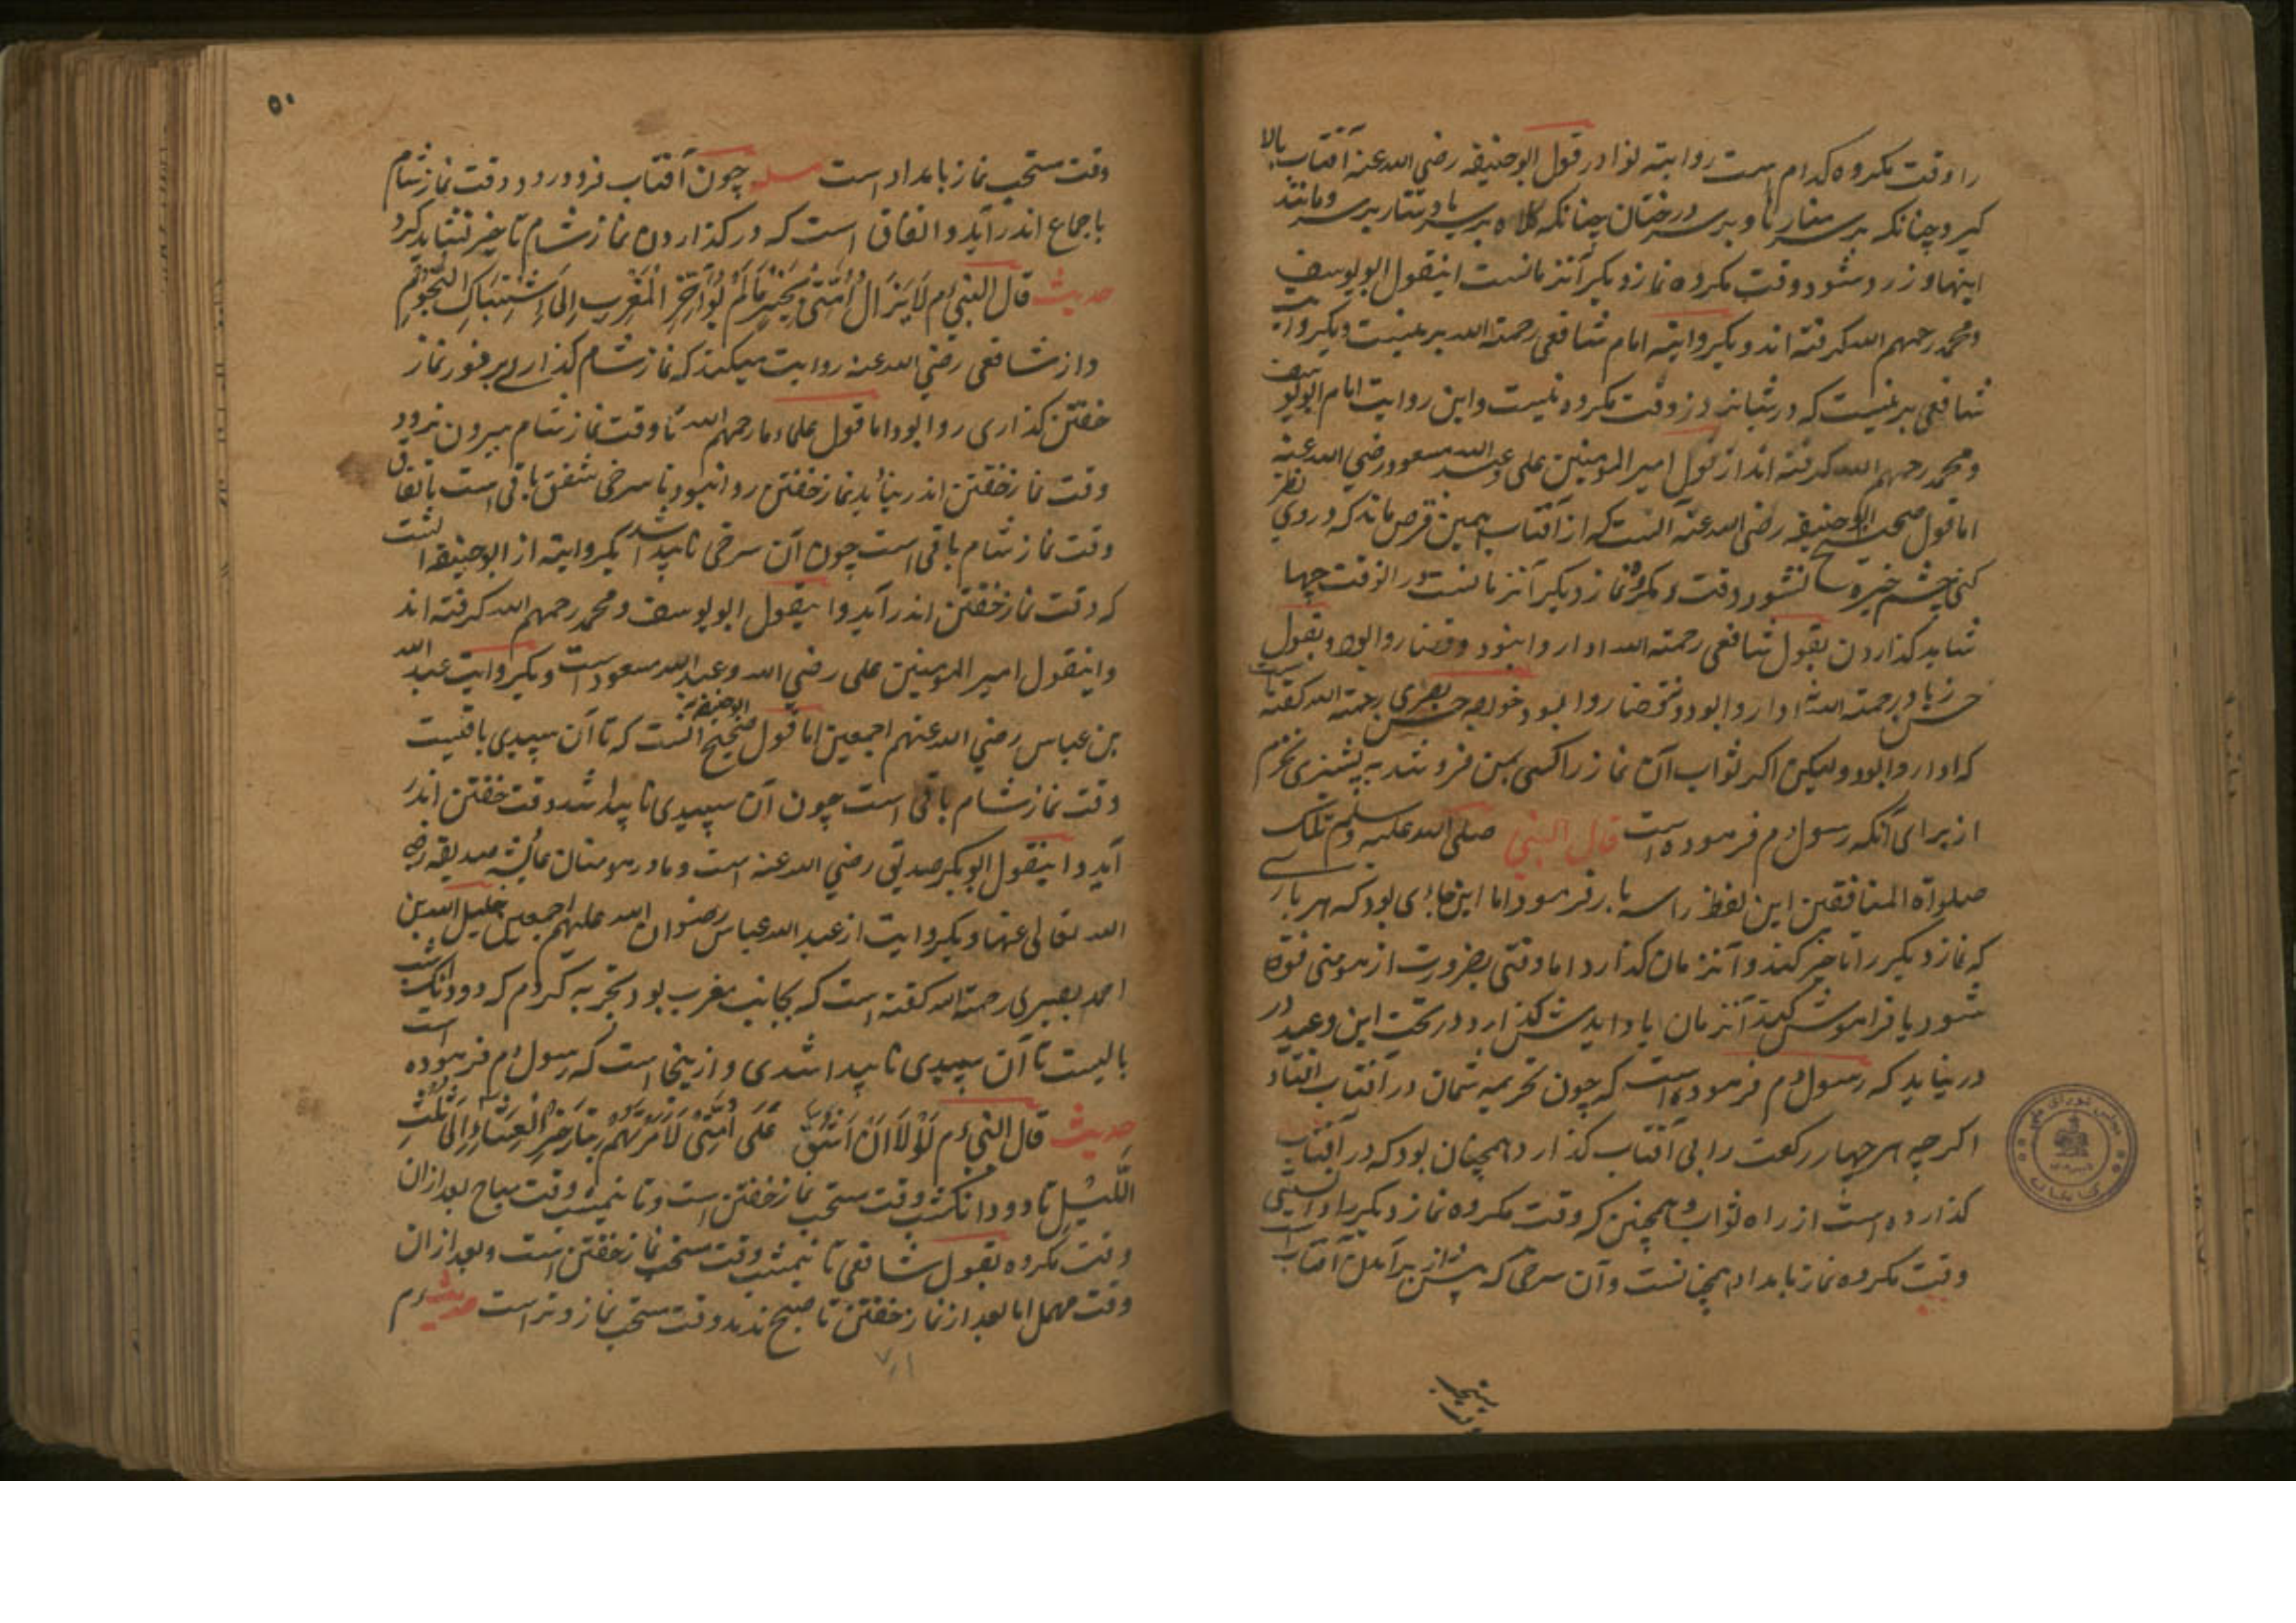 را وقت مکروه کدام است روایته نوادر قول ابوحنیفه رضی الله عنه آفتاب بالا
کیرد چنانکه بر سر منارها و بر سر درختان چنانکه کلاه بر سر یا دستار بر سر و مانند
اینها و زرد شود وقت مکروه نماز دیکر آنزمانست اینقول ابویوسف
و محمد رحمهم الله کرفته اند و یکروایته امام شافعی رحمة الله برینست و یکروایت
شافعی برینست که در شبانروز وقت مکروه نیست و این روایت امام ابویوسف
و محمد رحمهم الله کرفته اند از قول امیر المومنین علی و عبد الله مسعود رضی الله عنه
اما قول صحیح ابوحنیفه رضی الله عنه آنست که از آفتاب همین قرص ماند که در وی نظر
کنی چشم خیره نشود وقت مکروه نماز دیکر آنزمانست در انوقت چها
شاید کذاردن بقول شافعی رحمة الله ادا روا نبود و قضا روا بود و بقول
حسن زیاد رحمة الله ادا روا بود و قضا روا نبود خواجه حسن بصری رحمة الله کفته است
که ادا روا بود ولیکن اکر ثواب آن نماز را کسی بمن فروشد به پشیزی نخرم
از برای آنکه رسول م فرموده است قال النبی صلی الله علیه وسلم تلک
صلوة المنافقین این لفظ را سه بار فرمود اما این جای بود که هر بار
که نماز دیکر را تاخیر کند و آنزمان کذارد اما وقتی بضرورت از مومنی فوت
شود یا فراموش کند آنزمان یاد ایدش کذارد در تحت این وعید در
در نیاید که رسول م فرموده است که چون تحریمه شمان در آفتاب افتاد
اکر چه هر چهار رکعت را بی آفتاب کذارد همچنان بود که در آفتاب
کذارده است از راه ثواب و همچنین که وقت مکروه نماز دیکر را دانستی
وقت مکروه نماز بامداد همچنانست و آن سرخی که پیش از برآمدن آفتاب است
۵۰
وقت مستحب نماز بامداد است مسله چون آفتاب فرو رود وقت نماز شام
باجماع اندر آید و اتفاق است که در کذاردن نماز شام تاخیر نشاید کرد
حدیث قال النبی م لَا یَزَالُ اُمَّتِی بِخَیرٍ مَالَم یُؤَخِّرِ المَغرِبِ اِلَی اشتِبَاکِ النُّجُومِ
و از شافعی رضی الله عنه روایت میکنند که نماز شام کذاری بر فور نماز
خفتن کذاری روا بود اما قول علماء ما رحمهم الله تا وقت نماز شام بیرون نرود
وقت نماز خفتن اندر نیاید نماز خفتن روا نبود تا سرخی شفق باقی است باتفاق
وقت نماز شام باقی است چون آن سرخی ناپیدا شد یکروایته از ابوحنیفه آنست
که وقت نماز خفتن اندر آید و اینقول ابویوسف و محمد رحمهم الله کرفته اند
و اینقول امیر المومنین علی رضی الله و عبد الله مسعود است و یکروایت عبد الله
بن عباس رضی الله عنهم اجمعین اما قول صحیح ابوحنیفه آنست که تا آن سپیدی باقیست
وقت نماز شام باقی است چون آن سپیدی ناپیدا شد وقت خفتن اندر
آید و اینقول ابوبکر صدیق رضی الله عنه است و مادر مومنان عایشه صدیقه رضی
الله تعالی عنها و یکروایت از عبد الله عباس رضوان الله علیهم اجمعین خلیل الله بن
احمد بصری رحمة الله کفته است که بجانب مغرب بود تجربه کردم که دو دانک شب
بالیست تا آن سپیدی ناپیدا شدی و ازینجا است که رسول م فرموده است
حدیث قال النبی م لَولَا اَن اَشُقَّ عَلَی اُمَّتِی لَاَمَرتُهُم بِتَاخِیرِ العِشَاءِ اِلَی ثُلُثِ
اللَّیلِ تا دو دانک شب وقت مستحب نماز خفتن است و تا نیمشب وقت مباح بعد ازان
وقت مکروه بقول شافعی تا نیمشب وقت مستحب نماز خفتن است و بعد ازان
وقت مهمل اما بعد از نماز خفتن تا صبح ندمد وقت مستحب نماز وتر است حدیث م